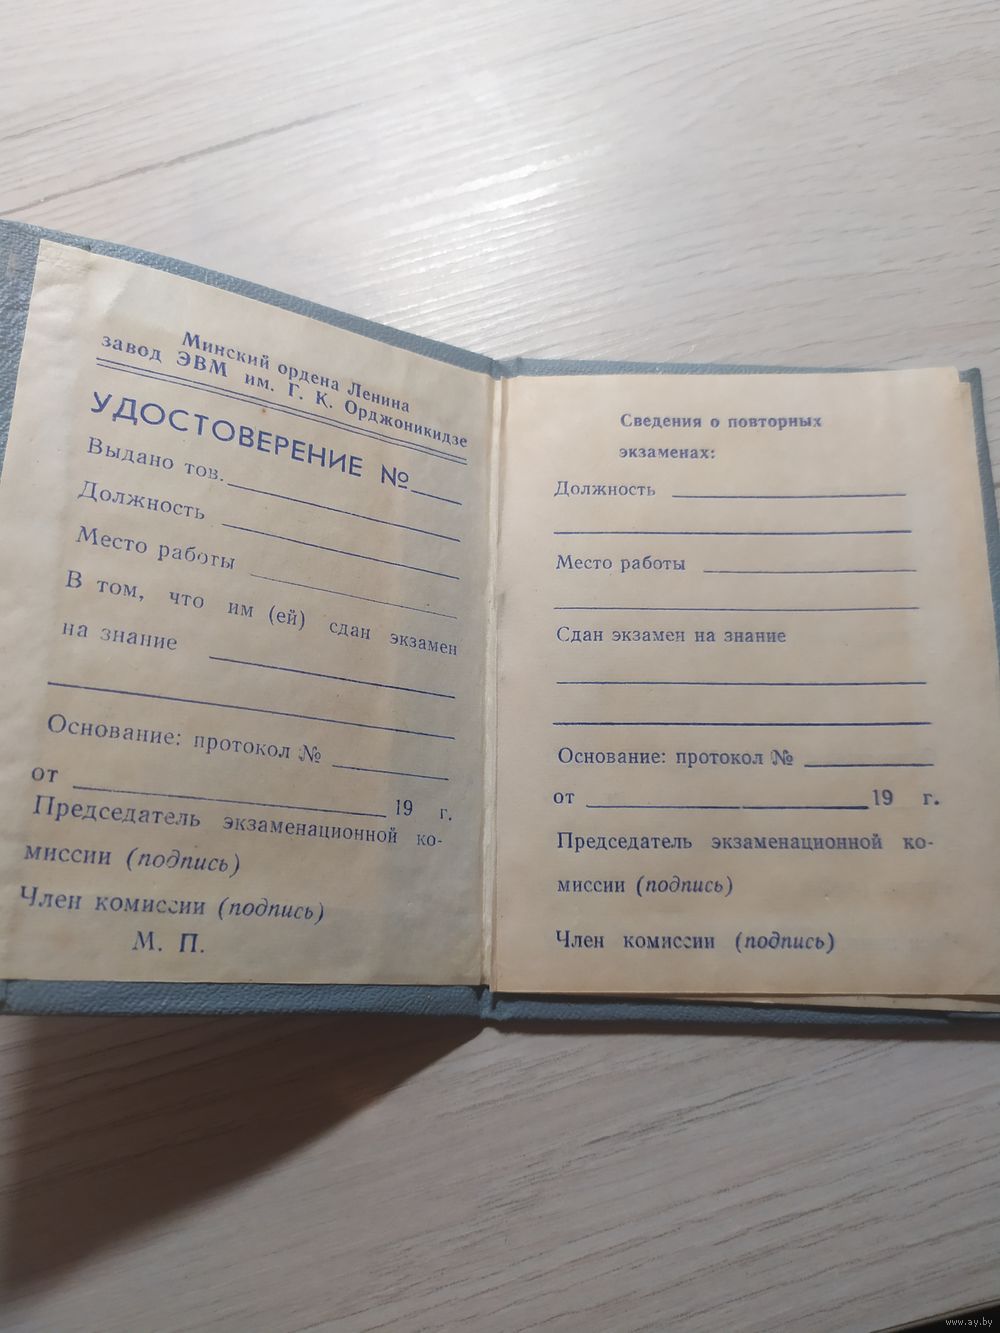 Минский ордена Ленина
завод ЭВМ им. Г. К. Орджоникидзе
УДОСТОВЕРЕНИЕ №
Выдано тов.
Должность
Место работы
В том, что им (ей) сдан экзамен
на знание
Основание: протокол №
от 19 г.
Председатель экзаменационной ко-
миссии (подпись)
Член комиссии (подпись)
М. П.
Сведения о повторных
экзаменах:
Должность
Место работы
Сдан экзамен на знание
Основание: протокол №
от 19 г.
Председатель экзаменационной ко-
миссии (подпись)
Член комиссии (подпись)
www.ay.by